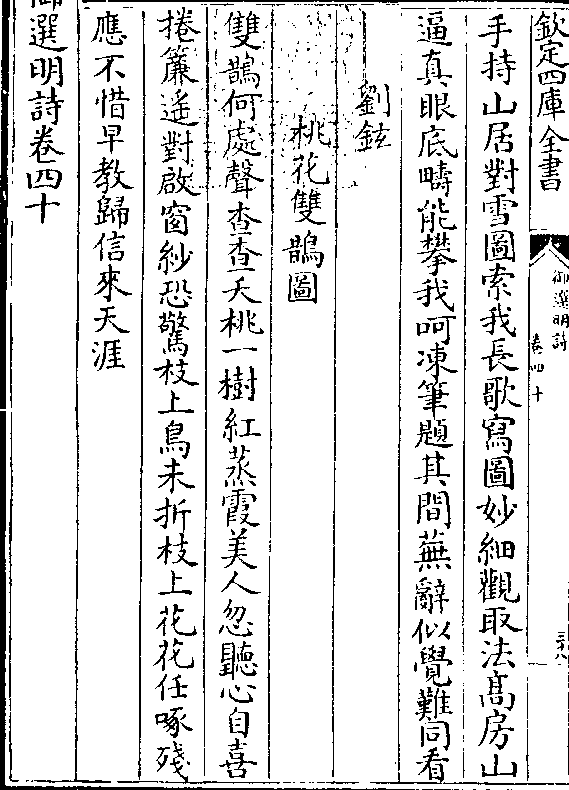 欽定四庫全書
御選明詩
卷四十
三八
手持山居對雪圖索我長歌寫圖妙細觀取法髙房山
逼真眼底疇能攀我呵凍筆題其間蕪辭似覺難同看
劉鉉
桃花雙鵲圖
雙鵲何處聲查查夭桃一樹紅蒸霞美人忽聽心自喜
捲簾遙對啟窗紗恐驚枝上鳥未折枝上花花任啄殘
應不惜早教歸信來天涯
御選明詩卷四十